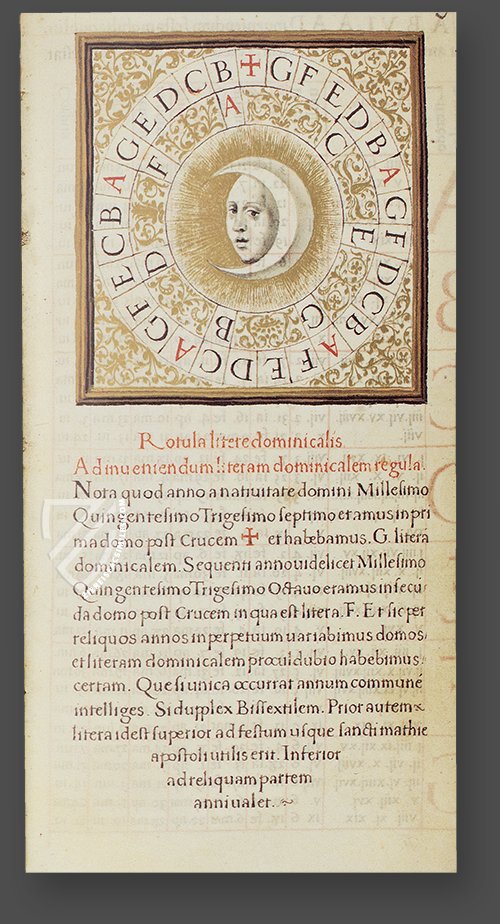 ✝ G F E D B A G F D C B A F E D C A G F E C B A G E D C B
A C E G B D F
Rotula litere dominicalis
Ad inueniendum literam dominicalem regula.
Nota quod anno a natiuitate domini Milleſimo
Quingenteſimo Trigeſimo ſeptimo eramus in pri
ma domo poſt Crucem ✝ et habebamus. G. litera
dominicalem. Sequenti anno uidelicet Milleſimo
Quingenteſimo Trigeſimo Octauo eramus in ſecu
da domo poſt Crucem in qua eſt litera. F. Et ſic per
reliquos annos in perpetuum uariabimus domos
et literam dominicalem procul dubio habebimus
certam. Que ſi unica occurrat annum commune
intelliges. Si dupplex Biſſextilem. Prior autem
litera id eſt ſuperior ad feſtum uſque ſancti mathie
apoſtoli utilis erit. Inferior
ad reliquam partem
anni ualet. ~